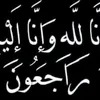 نَّا لِلّٰهِ وَإِنَّا إِلَيْ
رَاجِعُونَ